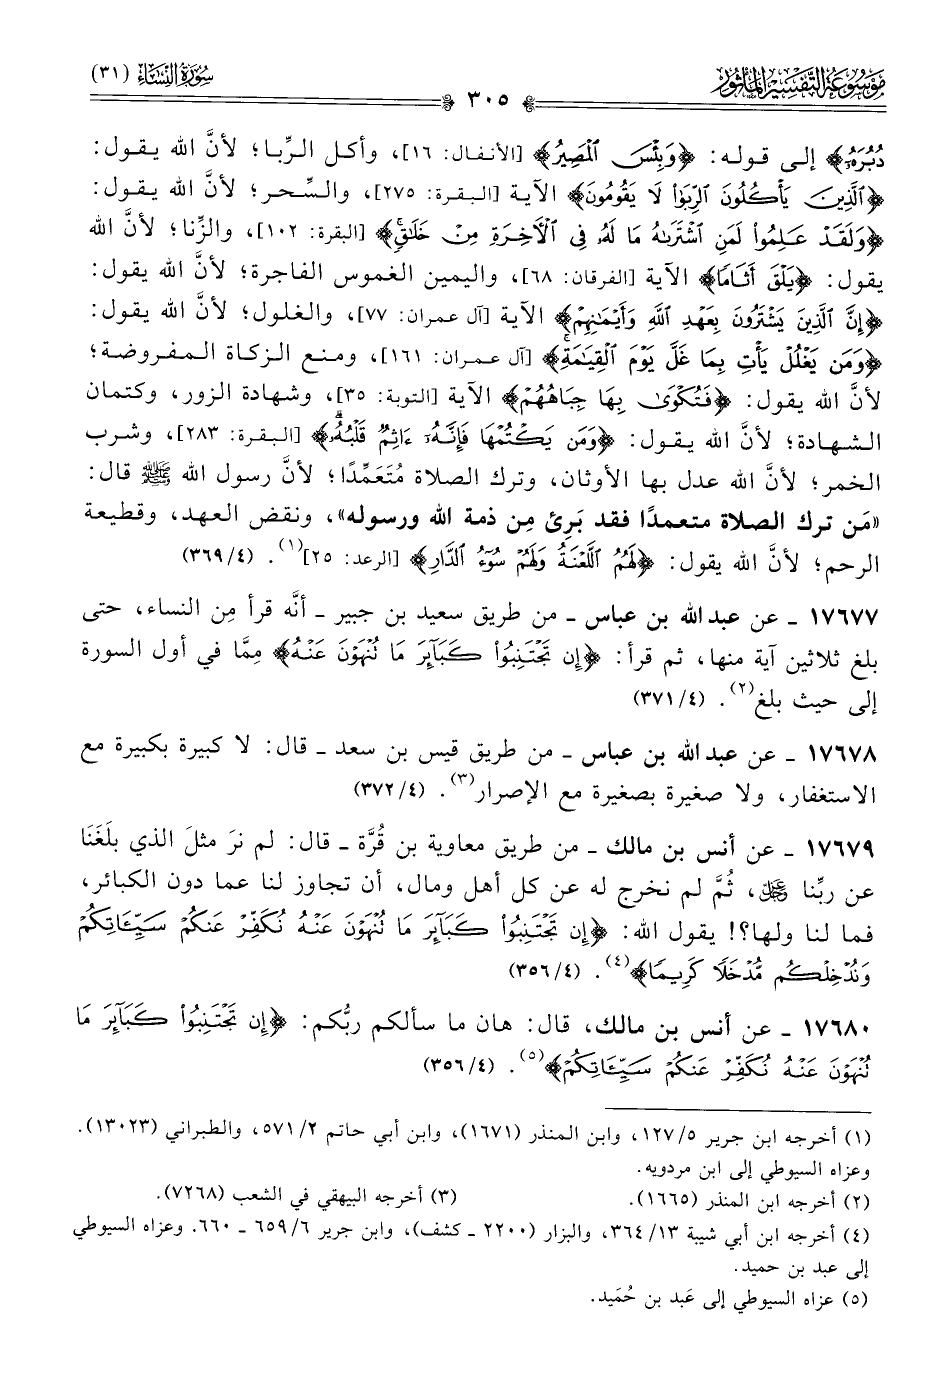 مَوْسُوعَة التَّفْسِير المَأْثُور
٣٠٥
سُورَةُ النِّسَاء (٣١)
دُبُرَهُۥٓ﴾ إلى قوله: ﴿وَبِئْسَ ٱلْمَصِيرُ﴾ [الأنفال: ١٦]، وأكل الرِّبا؛ لأنَّ الله يقول:
﴿ٱلَّذِينَ يَأْكُلُونَ ٱلرِّبَوٰا۟ لَا يَقُومُونَ﴾ الآية [البقرة: ٢٧٥]، والسِّحر؛ لأنَّ الله يقول:
﴿وَلَقَدْ عَلِمُوا۟ لَمَنِ ٱشْتَرَىٰهُ مَا لَهُۥ فِى ٱلْـَٔاخِرَةِ مِنْ خَلَـٰقٍ﴾ [البقرة: ١٠٢]، والزِّنا؛ لأنَّ الله
يقول: ﴿يَلْقَ أَثَامًا﴾ الآية [الفرقان: ٦٨]، واليمين الغموس الفاجرة؛ لأنَّ الله يقول:
﴿إِنَّ ٱلَّذِينَ يَشْتَرُونَ بِعَهْدِ ٱللَّهِ وَأَيْمَـٰنِهِمْ﴾ الآية [آل عمران: ٧٧]، والغلول؛ لأنَّ الله يقول:
﴿وَمَن يَغْلُلْ يَأْتِ بِمَا غَلَّ يَوْمَ ٱلْقِيَـٰمَةِ﴾ [آل عمران: ١٦١]، ومنع الزكاة المفروضة؛
لأنَّ الله يقول: ﴿فَتُكْوَىٰ بِهَا جِبَاهُهُمْ﴾ الآية [التوبة: ٣٥]، وشهادة الزور، وكتمان
الشهادة؛ لأنَّ الله يقول: ﴿وَمَن يَكْتُمْهَا فَإِنَّهُۥٓ ءَاثِمٌ قَلْبُهُۥ﴾ [البقرة: ٢٨٣]، وشرب
الخمر؛ لأنَّ الله عدل بها الأوثان، وترك الصلاة مُتَعَمِّدًا؛ لأنَّ رسول الله ﷺ قال:
«مَن ترك الصلاة متعمدًا فقد بَرِئ مِن ذمة الله ورسوله»، ونقض العهد، وقطيعة
الرحم؛ لأنَّ الله يقول: ﴿لَهُمُ ٱللَّعْنَةُ وَلَهُمْ سُوٓءُ ٱلدَّارِ﴾ [الرعد: ٢٥](١). (٣٦٩/٤)
١٧٦٧٧ ـ عن عبد الله بن عباس ـ من طريق سعيد بن جبير ـ أنَّه قرأ مِن النساء، حتى
بلغ ثلاثين آية منها، ثم قرأ: ﴿إِن تَجْتَنِبُوا۟ كَبَآئِرَ مَا تُنْهَوْنَ عَنْهُ﴾ مِمَّا في أول السورة
إلى حيث بلغ(٢). (٣٧١/٤)
١٧٦٧٨ ـ عن عبد الله بن عباس ـ من طريق قيس بن سعد ـ قال: لا كبيرة بكبيرة مع
الاستغفار، ولا صغيرة بصغيرة مع الإصرار(٣). (٣٧٢/٤)
١٧٦٧٩ ـ عن أنس بن مالك ـ من طريق معاوية بن قُرَّة ـ قال: لم نرَ مثلَ الذي بلَغَنَا
عن ربِّنا ﷻ، ثُمَّ لم نخرج له عن كل أهل ومال، أن تجاوز لنا عما دون الكبائر،
فما لنا ولها؟! يقول الله: ﴿إِن تَجْتَنِبُوا۟ كَبَآئِرَ مَا تُنْهَوْنَ عَنْهُ نُكَفِّرْ عَنكُمْ سَيِّـَٔاتِكُمْ
وَنُدْخِلْكُم مُّدْخَلًا كَرِيمًا﴾(٤). (٣٥٦/٤)
١٧٦٨٠ ـ عن أنس بن مالك، قال: هان ما سألكم ربُّكم: ﴿إِن تَجْتَنِبُوا۟ كَبَآئِرَ مَا
تُنْهَوْنَ عَنْهُ نُكَفِّرْ عَنكُمْ سَيِّـَٔاتِكُمْ﴾(٥). (٣٥٦/٤)
(١) أخرجه ابن جرير ١٢٧/٥، وابن المنذر (١٦٧١)، وابن أبي حاتم ٥٧١/٢، والطبراني (١٣٠٢٣).
وعزاه السيوطي إلى ابن مردويه.
(٢) أخرجه ابن المنذر (١٦٦٥). (٣) أخرجه البيهقي في الشعب (٧٢٦٨).
(٤) أخرجه ابن أبي شيبة ٣٦٤/١٣، والبزار (٢٢٠٠ ـ كشف)، وابن جرير ٦٥٩/٦ ـ ٦٦٠. وعزاه السيوطي
إلى عبد بن حميد.
(٥) عزاه السيوطي إلى عَبد بن حُمَيد.